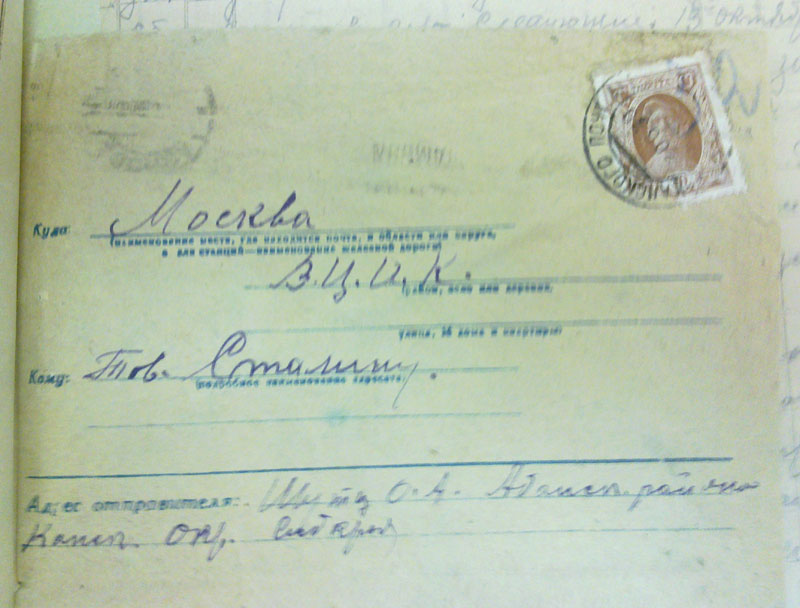 13 октября
Куда: Москва
(наименование места, где находится почта, и области или округа,
а для станций—наименование железной дороги)
В.Ц.И.К.
(район, село или деревня)
улица, № дома и квартиры)
Кому: Тов. Сталину.
(подробное наименование адресата)
Адрес отправителя: Шутц О.А. Абанск. района
Канск. Окр. Сибкрая